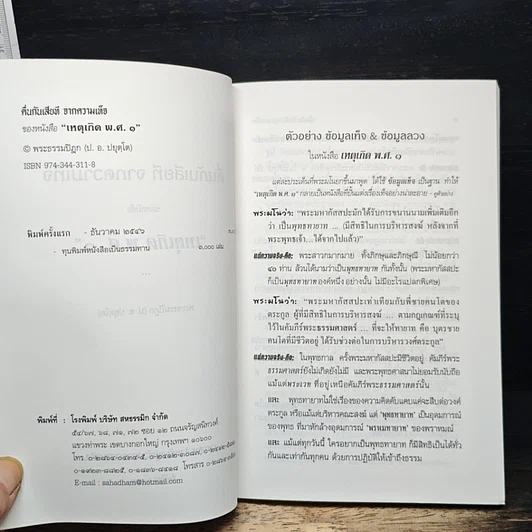 ตื่นกันเสียที จากความเท็จ
ของหนังสือ "เหตุเกิด พ.ศ. ๑"
© พระธรรมปิฎก (ป. อ. ปยุตฺโต)
ISBN 974-344-311-8
พิมพ์ครั้งแรก - ธันวาคม ๒๕๔๖
- ทุนพิมพ์หนังสือเป็นธรรมทาน ๓,๐๐๐ เล่ม
พิมพ์ที่ : โรงพิมพ์ บริษัท สหธรรมิก จำกัด
๕๔/๖๗, ๖๘, ๗๑, ๗๒ ซอย ๑๒ ถนนจรัญสนิทวงศ์
แขวงท่าพระ เขตบางกอกใหญ่ กรุงเทพฯ ๑๐๖๐๐
E - mail : sahadham@hotmail.com
ตัวอย่าง ข้อมูลเท็จ & ข้อมูลลวง
ในหนังสือ เหตุเกิด พ.ศ. ๑
แต่ละประเด็นที่พระมโนยกขึ้นมาพูด ได้ใช้ ข้อมูลเท็จ เป็นฐาน ทำให้
"เหตุเกิด พ.ศ. ๑" กลายเป็นหนังสือที่ยืนแต่งเรื่องเท็จอย่างน่าละอาย -
พระมโนว่า: "พระมหากัสสปะมักได้รับการขนานนามเพิ่มเติมอีก
ว่า เป็นพุทธทายาท ... (มีสิทธิในการบริหารสงฆ์ หลังจากที่
พระพุทธเจ้า...ได้จากไปแล้ว)"
แต่ความจริง-คือ: พระสาวกมากมาย ทั้งภิกษุและภิกษุณี ไม่น้อยกว่า
๔๐ ท่าน ล้วนได้นามว่าเป็นพุทธทายาท กันทั้งนั้น (พระมหากัสสปะ
ก็เป็นพุทธทายาทองค์หนึ่ง อย่างนั้น ไม่มีอะไรแปลกพิเศษ)
พระมโนว่า: "พระมหากัสสปะเท่าเทียมกับพี่ชายคนโตของ
ตระกูล ผู้ที่มีสิทธิในการบริหารสงฆ์ ... ตามกฎเกณฑ์ที่ระบุ
ไว้ในคัมภีร์พระธรรมศาสตร์ ... ที่จะให้ทายาท คือ บุตรชาย
คนโตที่มีชีวิตอยู่ ได้รับช่วงต่อในการบริหารวงศ์ตระกูล"
แต่ความจริง-คือ: ในพุทธกาล ครั้งพระมหากัสสปะมีชีวิตอยู่ คัมภีร์พระ
ธรรมศาสตร์ยังไม่เกิดยังไม่มี และพระพุทธศาสนาไม่ยอมรับนับถือ
แม้แต่พระเวท ที่อยู่เหนือคัมภีร์พระธรรมศาสตร์นั้น
และ พุทธทายาทไม่ใช่เรื่องของความคิดคับแคบแค่จะสืบต่อวงศ์
ตระกูล หรือแม้แต่บริหารคณะสงฆ์ แต่ "พุทธทายาท" เป็นอุดมการณ์
ของพุทธ ที่มาหักล้างอุดมการณ์ "พรหมทายาท" ของพราหมณ์
และ แม้แต่ทุกวันนี้ ใครอยากเป็นพุทธทายาท ก็มีสิทธิเป็นได้ทั่ว
กันและเท่ากันทุกคน ด้วยการปฏิบัติให้เข้าถึงธรรม